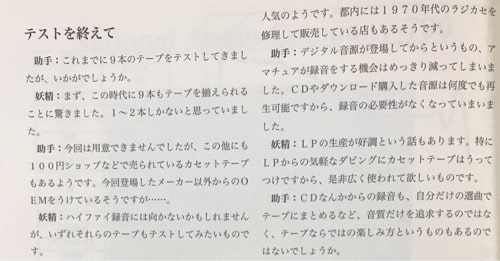 テストを終えて
助手：これまでに９本のテープをテストしてきまし
たが、いかがでしょうか。
妖精：まず、この時代に９本もテープを揃えられる
ことに驚きました。１～２本しかないと思っていまし
た。
助手：今回は用意できませんでしたが、この他にも
１００円ショップなどで売られているカセットテープ
もあるようです。今回登場したメーカー以外からのＯ
ＥＭをうけているそうですが……。
妖精：ハイファイ録音には向かないかもしれません
が、いずれそれらのテープもテストしてみたいもので
す。
人気のようです。都内には１９７０年代のラジカセを
修理して販売している店もあるそうです。
助手：デジタル音源が登場してからというもの、ア
マチュアが録音をする機会はめっきり減ってしまいま
した。ＣＤやダウンロード購入した音源は何度でも再
生可能ですから、録音の必要性がなくなっていまいま
した。
妖精：ＬＰの生産が好調という話もあります。特に
ＬＰからの気軽なダビングにカセットテープはうって
つけですから、是非広く使われて欲しいものです。
助手：ＣＤなんかからの録音も、自分だけの選曲で
テープにまとめるなど、音質だけを追求するのではな
く、テープならではの楽しみ方というものもあるので
はないでしょうか。